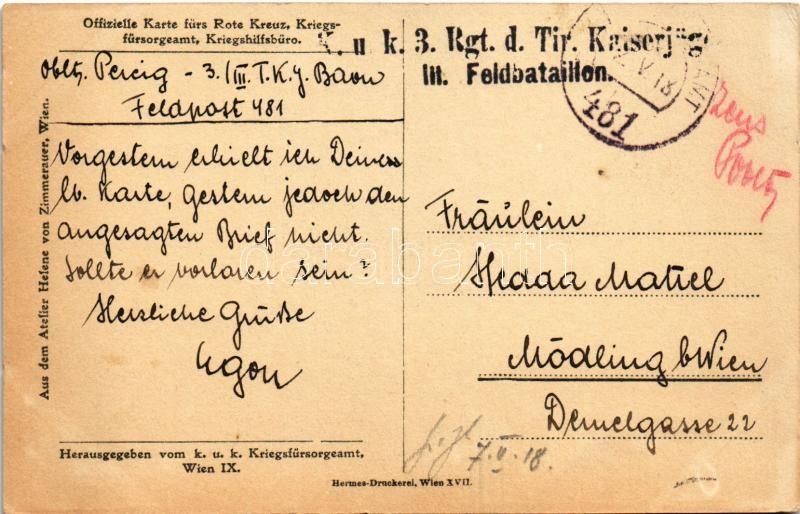 Offizielle Karte fürs Rote Kreuz, Kriegs-
fürsorgeamt, Kriegshilfsbüro.
K. u. k. 3. Rgt. d. Tir. Kaiserjäg
III. Feldbataillon.
V 18
AMT
481
Obltz. Percig - 3./III. T.K.J. Baon
Feldpost 481
Vorgestern erhielt ich Deine
lb. Karte, gestern jedoch den
angesagten Brief nicht.
Sollte er verloren sein?
Herzliche Grüße
Egon
Aus dem Atelier Helene von Zimmerauer, Wien.
Herausgegeben vom k. u. k. Kriegsfürsorgeamt,
Wien IX.
Hermes-Druckerei, Wien XVII.
Fräulein
Hedda
Mödling b Wien
Demelgasse 22
7.V.18.
darabanth